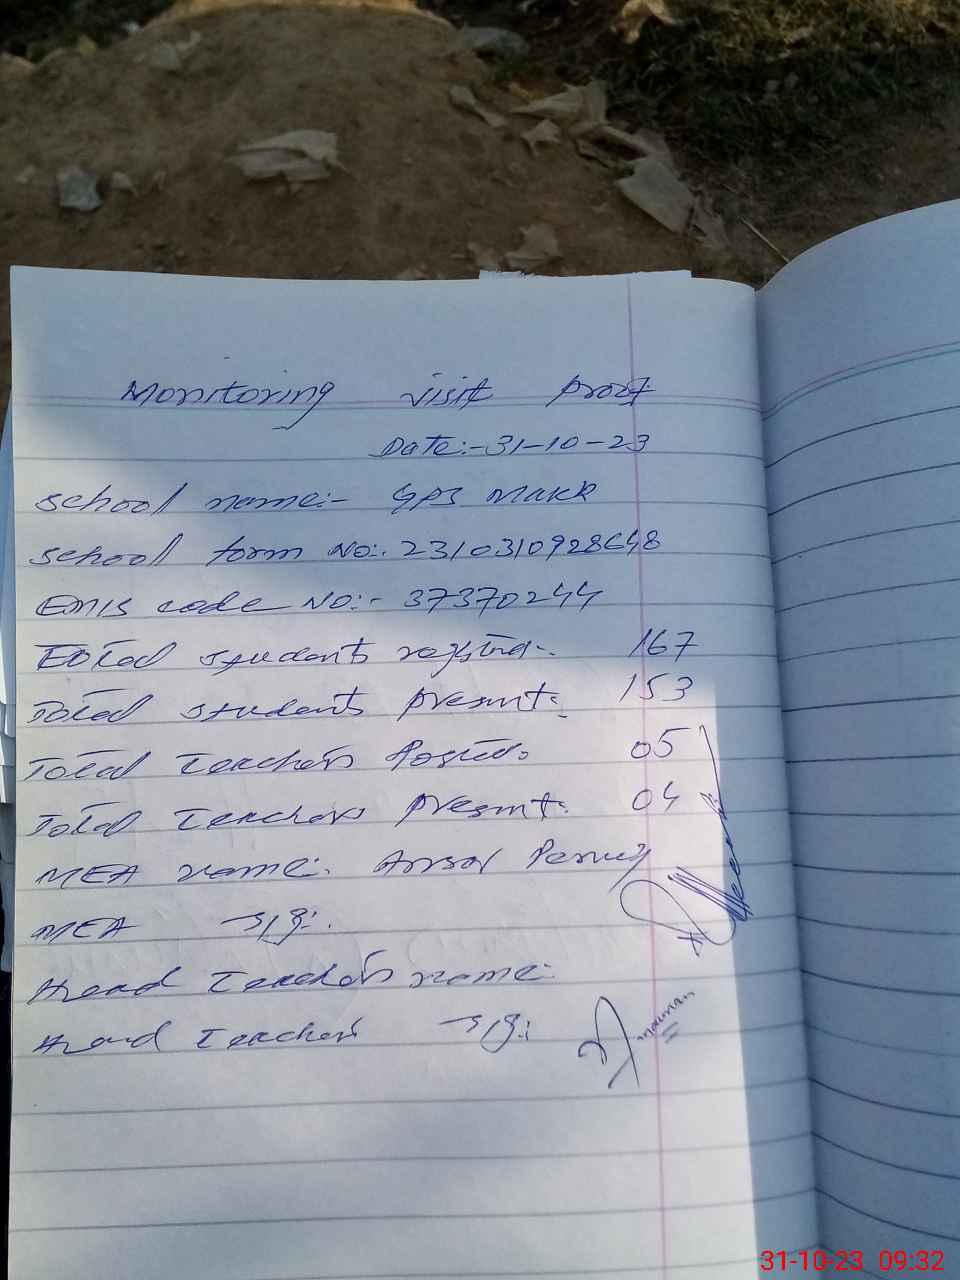 Monitoring visit proof
Date:- 31-10-23
School name:- GPS Makk
School form No:. 2310310928648
EMIS code No:- 37370244
Total students registrd:.
167
Total students present:
153
Total Teachers Posted:
05
Total Teachers present:
04
MEA name:
MEA sig:.
Head Teachers name:
Head Teachers sig:
31-10-23 09:32